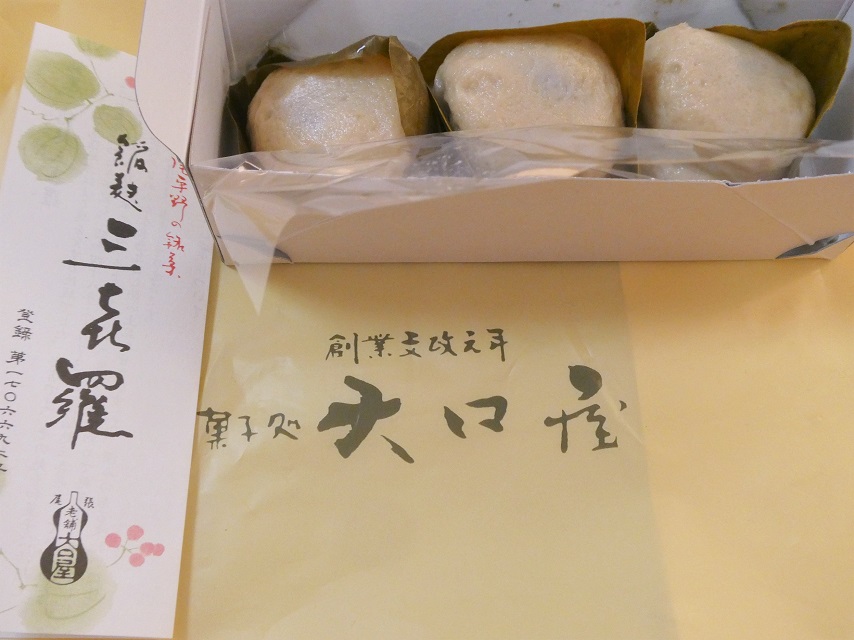 平野の銘菓
餡麩
三喜羅
登録 第一七〇六六九二
尾張
老舗
大口屋
創業文政元年
菓子処 大口屋